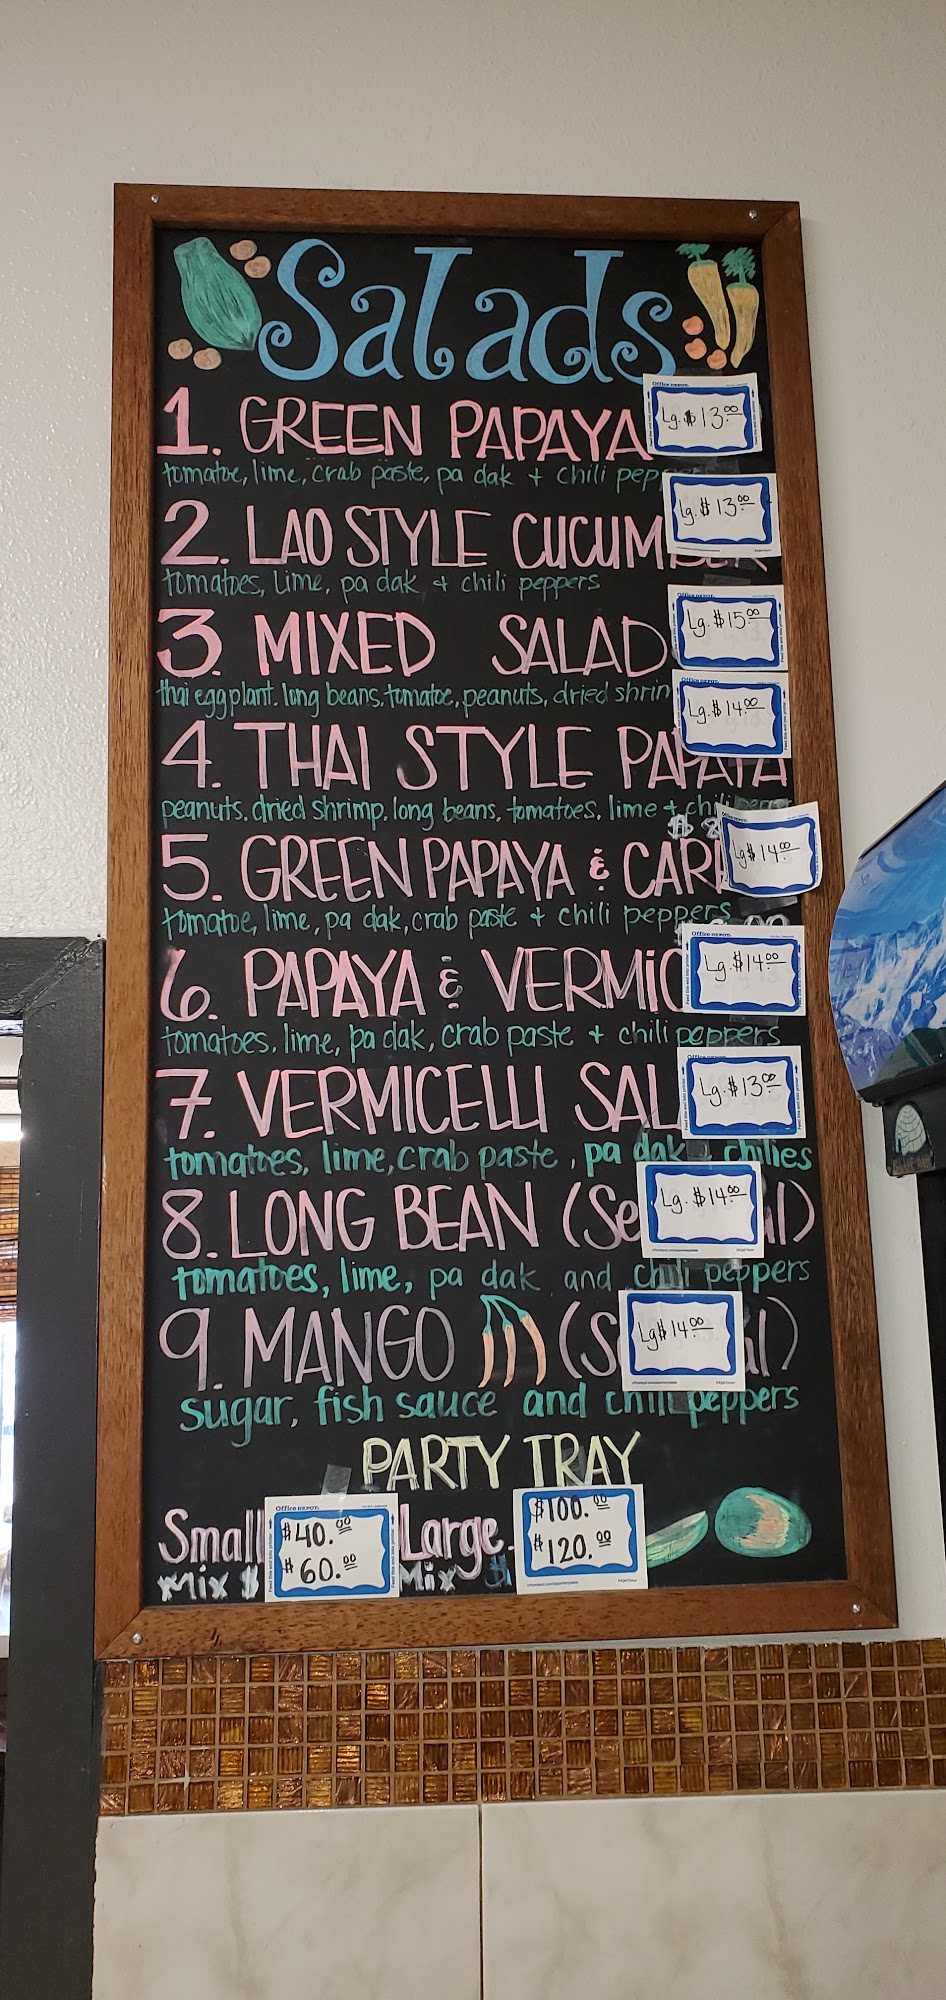 Salads
1. GREEN PAPAYA Lg. $13.00
tomatoe, lime, crab paste, pa dak + chili pep
2. LAO STYLE CUCUM Lg. $13.00
tomatoes, Lime, pa dak + chili peppers
3. MIXED SALAD Lg. $15.00
thai eggplant, long beans, tomatoe, peanuts, dried shrim
4. THAI STYLE PAPAYA Lg. $14.00
peanuts, dried shrimp, long beans, tomatoes, lime + chili pepper
5. GREEN PAPAYA & CAR Lg. $14.00
tomatoe, lime, pa dak, crab paste + chili peppers
6. PAPAYA & VERMIC Lg. $14.00
tomatoes, lime, pa dak, crab paste + chili peppers
7. VERMICELLI SAL Lg. $13.00
tomatoes, lime, crab paste, pa dak + chilies
8. LONG BEAN (Se al) Lg. $14.00
tomatoes, lime, pa dak and chili peppers
9. MANGO (S al) Lg $14.00
sugar, fish sauce and chili peppers
PARTY TRAY
Small $40.00 Large $100.00
Mix $60.00 Mix $120.00